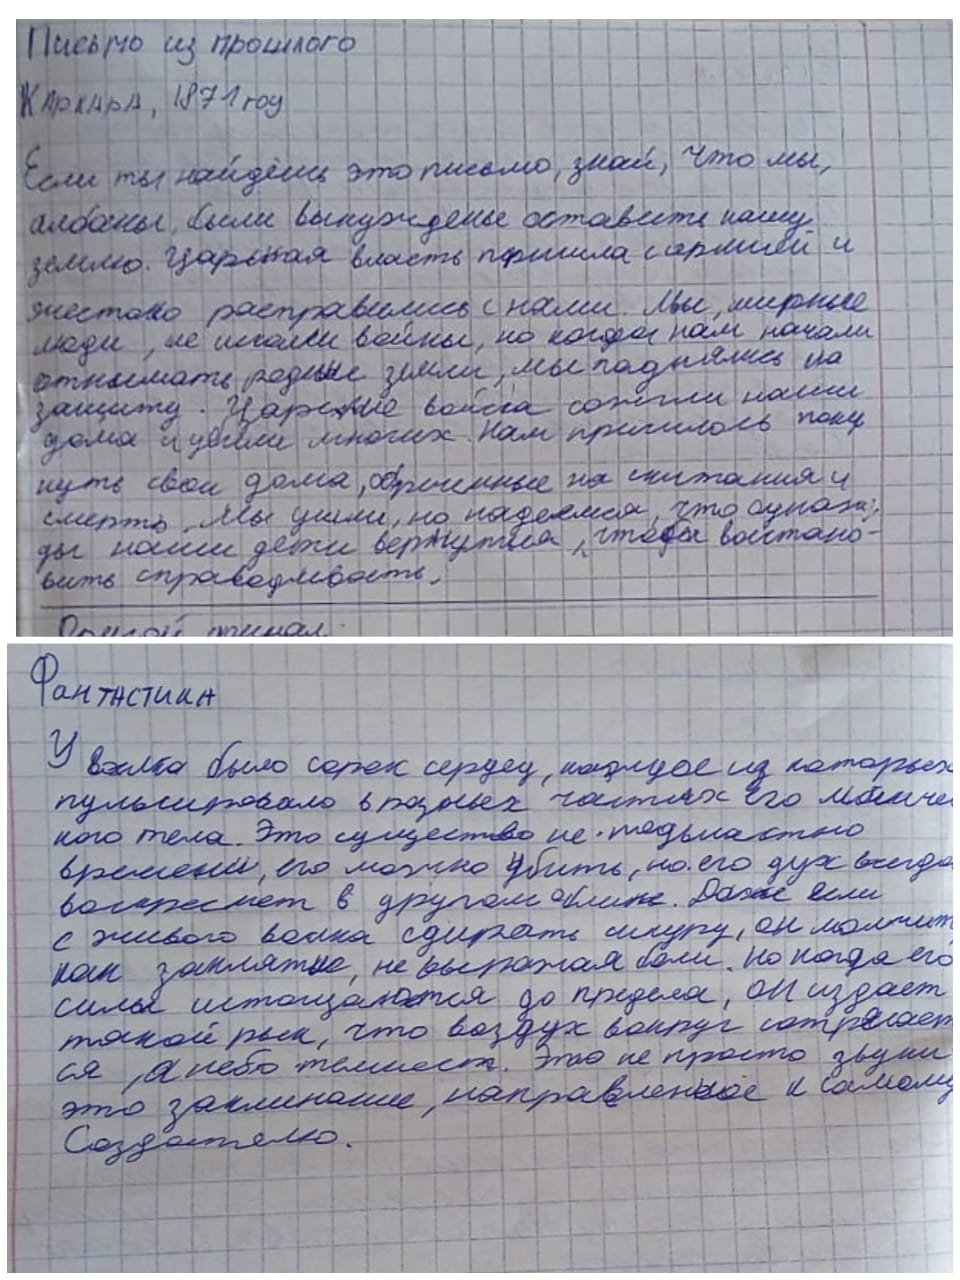 Письмо из прошлого
Каркара, 1871 году
Если ты найдёшь это письмо, знай, что мы,
албаны, были вынужденье оставить нашу
землю. Царская власть пришла с армией и
жестоко расправились с нами. Мы, мирные
люди, не искали войны, но когда нам начали
отнымать родные земли, мы поднялись на
защиту. Царские войска сожгли наши
дома и убили многих. Нам пришлось поки
нуть свои дома, обреченные на скитания и
смерть. Мы ушли, но надеемся, что однаж-
ды наши дети вернутся, чтобы восстано-
вить справедливость.
Другой финал:
Фантастика
У волка было сорок сердец, каждое из которых
пульсировало в разных частях его
кого тела. Это существо не подвластно
времени, его можно убить, но его дух всегда
воскреснет в другом облике. Даже если
с живого волка сдирать шкуру, он молчит
как заклятые, не выражая боли. Но когда его
силы истощаются до предела, он издает
такой рык, что воздух вокруг сотрясает
ся, а небо темнеет. Это не просто звуки
это заклинание, направленное к самому
Создателю.